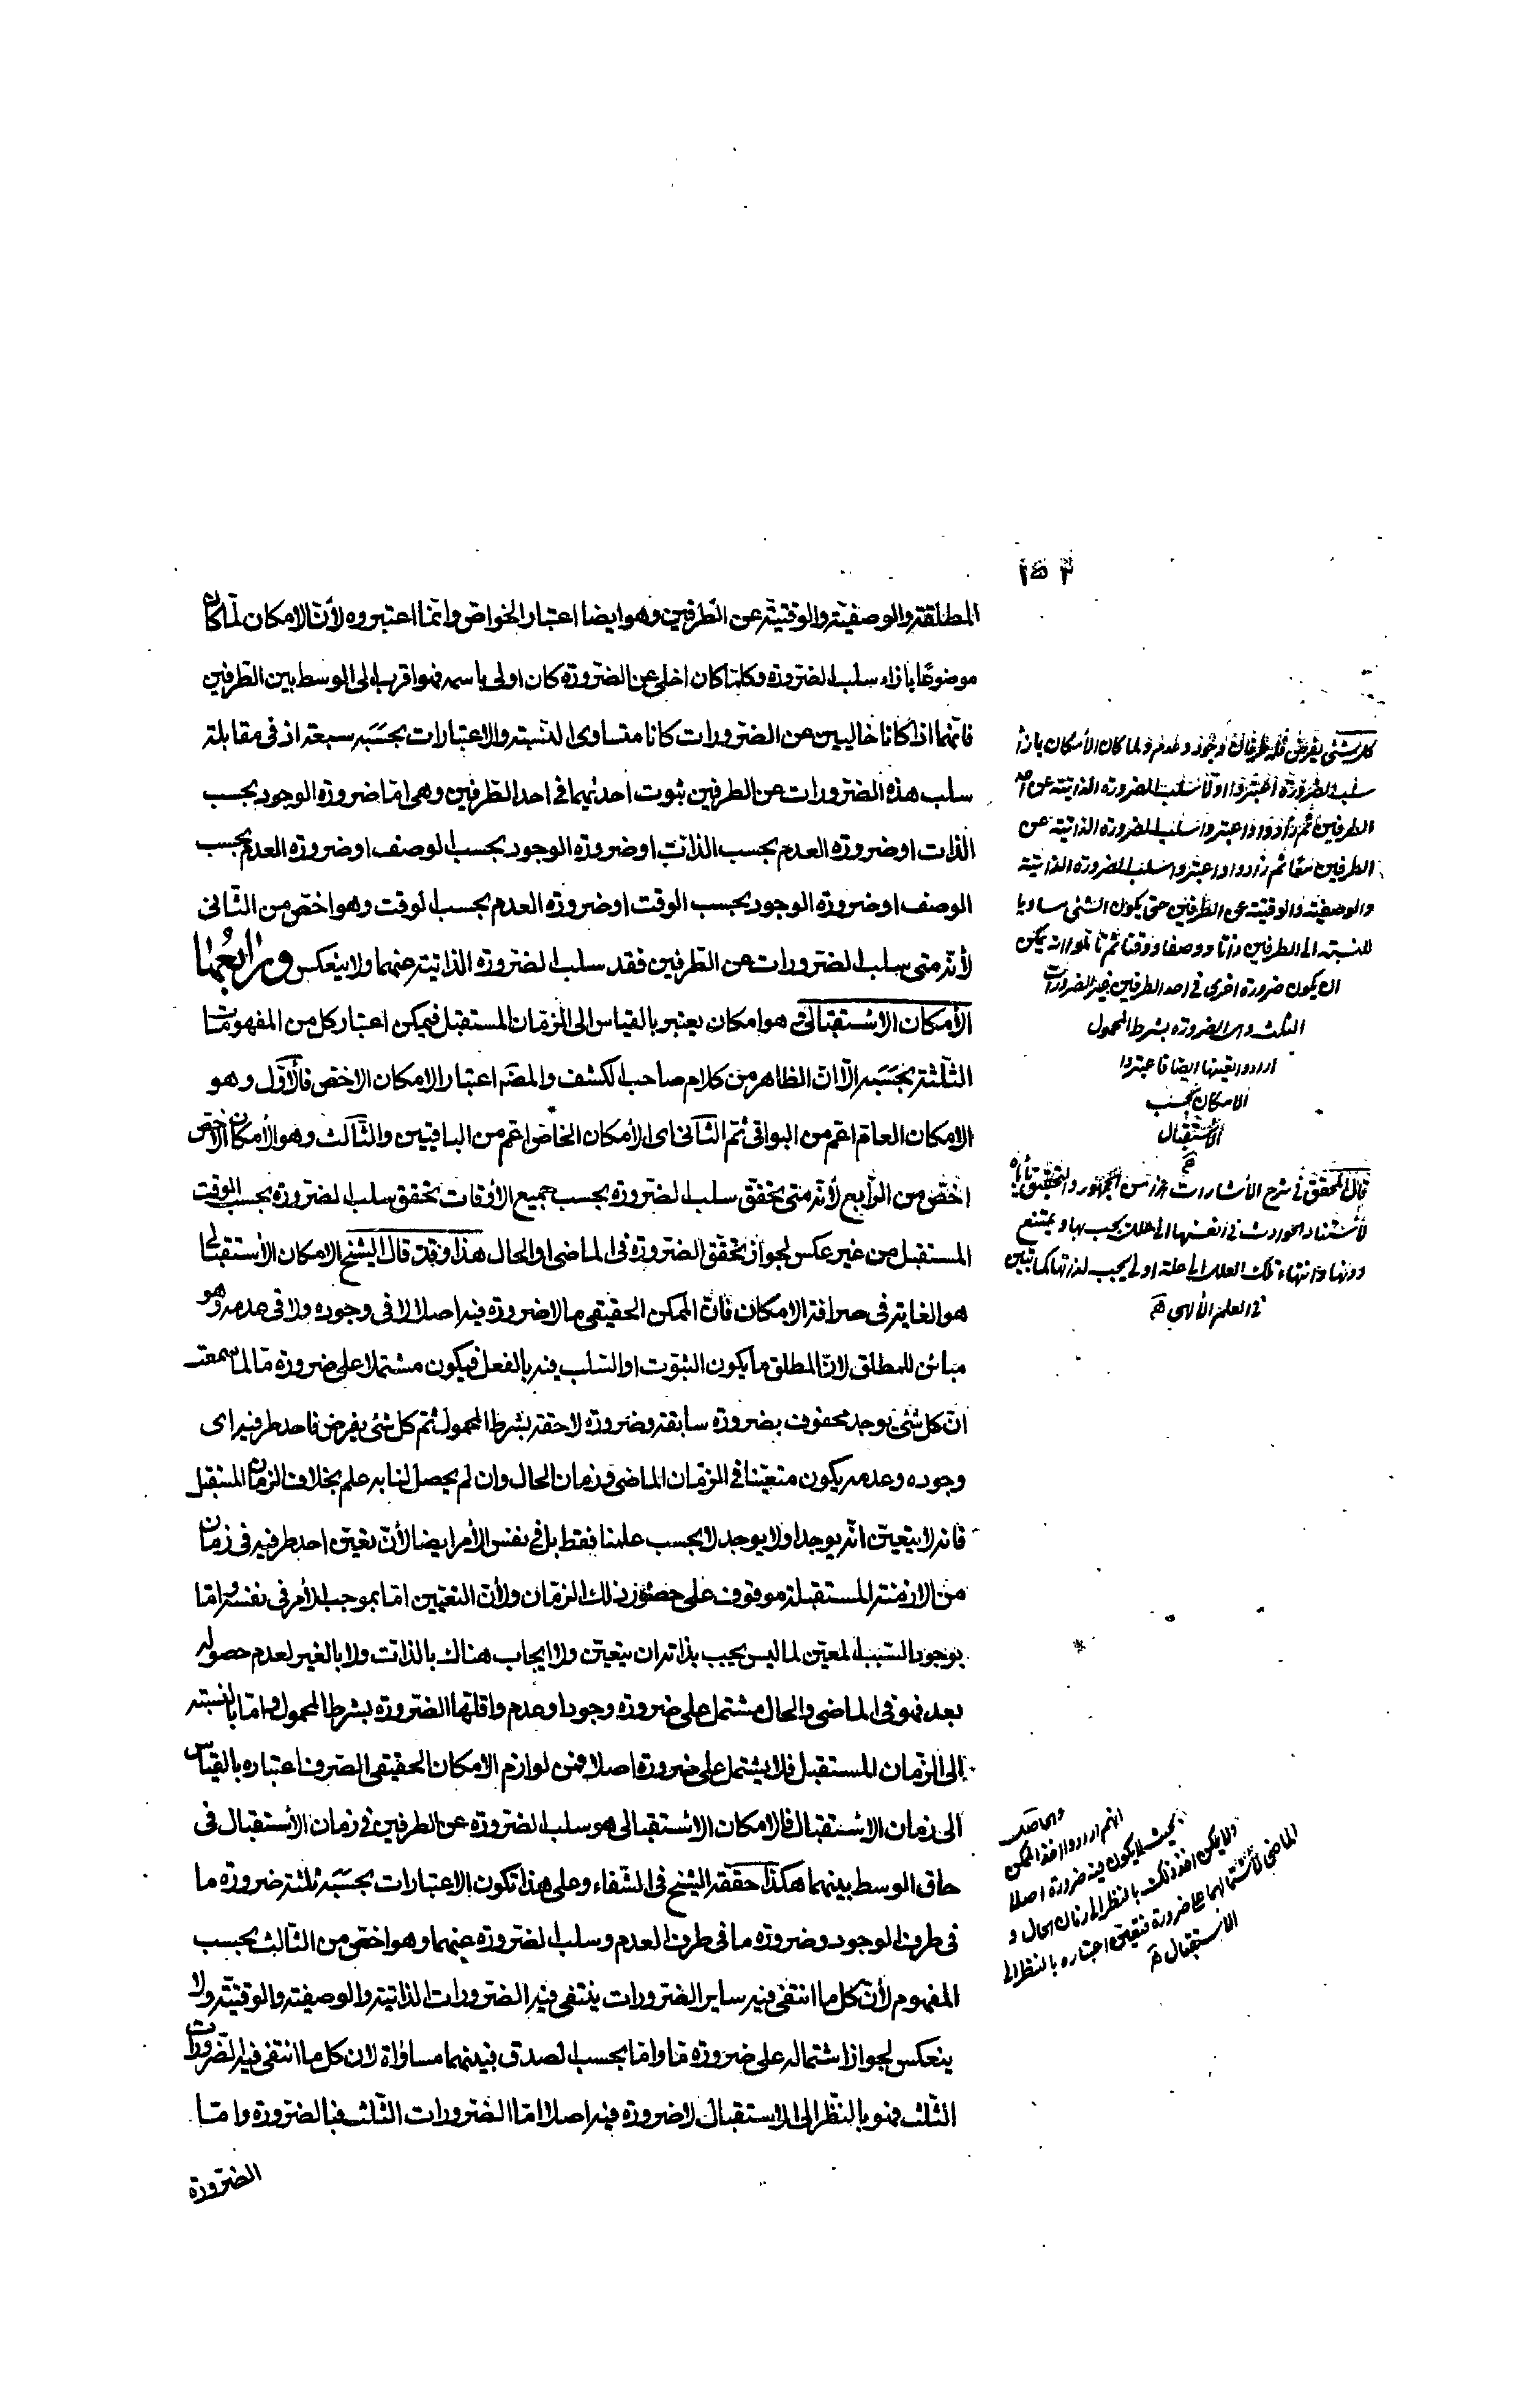 ١٥٣
المطلقة والوصفية والوقتية عن الطرفين وهو ايضا اعتبار الخواص وانما اعتبروه لأن الامكان لما كان
موضوعا بازاء سلب الضرورة وكلما كان اخلى عن الضرورة كان اولى باسمه فهو اقرب الى الوسط بين الطرفين
فانهما اذا كانا خاليين عن الضرورات كانا متساوى النسبة والاعتبارات بحسبه سبعة اذ فى مقابلة
سلب هذه الضرورات عن الطرفين ثبوت احديهما فى احد الطرفين وهى اما ضرورة الوجود بحسب
الذات او ضرورة العدم بحسب الذات او ضرورة الوجود بحسب الوصف او ضرورة العدم بحسب
الوصف او ضرورة الوجود بحسب الوقت او ضرورة العدم بحسب الوقت وهو اخص من الثانى
لأنه متى سلب الضرورات عن الطرفين فقد سلب الضرورة الذاتية عنهما ولا ينعكس ورابعهما
الأمكان الاستقبالى هو امكان يعتبر بالقياس الى الزمان المستقبل فيمكن اعتبار كل من المفهومات
الثلثة بحسبه الا ان الظاهر من كلام صاحب الكشف والمصنف اعتبار الامكان الاخص فالأول وهو
الامكان العام اعم من البواقى ثم الثانى اى الأمكان الخاص اعم من الباقيين والثالث وهو الأمكان الأخص
اخص من الرابع لأنه متى تحقق سلب الضرورة بحسب جميع الأوقات تحقق سلب الضرورة بحسب الوقت
المستقبل من غير عكس لجواز تحقق الضرورة فى الماضى او الحال هذا وقد قال الشيخ الامكان الأستقبالى
هو الغاية فى صرافة الامكان فان الممكن الحقيقى ما لا ضرورة فيه اصلا لا فى وجوده ولا فى عدمه وهو
مباين للمطلق لان المطلق ما يكون الثبوت او السلب فيه بالفعل فيكون مشتملا على ضرورة ما لما سمعت
ان كل شئ يوجد محفوف بضرورة سابقة وضرورة لاحقة بشرط المحمول ثم كل شئ يفرض فاحد طرفيه اى
وجوده وعدمه يكون متعينا فى الزمان الماضى وزمان الحال وان لم يحصل لنا به علم بخلاف الزمان المستقبل
فانه لا يتعين انه يوجد او لا يوجد لا بحسب علمنا فقط بل فى نفس الأمر ايضا لأن تعين احد طرفيه فى زمان
من الازمنة المستقبلة موقوف على حضور ذلك الزمان ولأن التعيين اما بموجب الأمر فى نفسه واما
بوجود السبب المعين لما ليس يجب بذاته ان يتعين ولا ايجاب هناك بالذات ولا بالغير لعدم حصوله
بعد فهو فى الماضى والحال مشتمل على ضرورة وجود او عدم واقلها الضرورة بشرط المحمول واما بالنسبة
الى الزمان المستقبل فلا يشتمل على ضرورة اصلا فمن لوازم الامكان الحقيقى الصرف اعتباره بالقياس
الى زمان الاستقبال فالامكان الاستقبالى هو سلب الضرورة عن الطرفين فى زمان الأستقبال فى
حاق الوسط بينهما هكذا حققه الشيخ فى الشفاء وعلى هذا تكون الاعتبارات بحسبه ثلثة ضرورة ما
فى طرف الوجود وضرورة ما فى طرف العدم وسلب الضرورة عنهما وهو اخص من الثالث بحسب
المفهوم لأن كل ما انتفى فيه ساير الضرورات ينتفى فيه الضرورات الذاتية والوصفية والوقتية ولا
ينعكس لجواز اشتماله على ضرورة ما واما بحسب الصدق فبينهما مساواة لان كل ما انتفى فيه الضرورات
الثلث فهو بالنظر الى الاستقبال لا ضرورة فيه اصلا اما الضرورات الثلث فبالضرورة واما
الضرورة
كل شئ يفرض فله طرفان وجود وعدم ولما كان الأمكان بازاء
سلب الضرورة اعتبروا اولا سلب الضرورة الذاتية عن احد
الطرفين ثم زادوا واعتبروا سلب الضرورة الذاتية عن
الطرفين معا ثم زادوا واعتبروا سلب الضرورة الذاتية
والوصفية والوقتية عن الطرفين حتى يكون الشئ مساويا
النسبة الى الطرفين ذاتا ووصفا ووقتا ثم يمكن
ان يكون ضرورة اخرى فى احد الطرفين غير الضرورات
الثلث وهى الضرورة بشرط المحمول
ارادوا نفيها ايضا فاعتبروا
الامكان بحسب
الأستقبال
قال المحقق فى شرح الأشارات الجمهور والتحقيق يأباه
لأستناد الحوادث فى انفسها الى علل يجب بها ويمتنع
دونها وانتهاء تلك العلل الى علة اولى يجب لذاتها كما تبين
فى العلم الألهى
والحاصل
انهم ارادوا اخذ الممكن
بحيث لا يكون فيه ضرورة اصلا
ولا يمكن اخذ ذلك بالنظر الى زمان الحال و
الماضى لأشتمالهما على ضرورة فتعين اعتباره بالنظر الى
الاستقبال